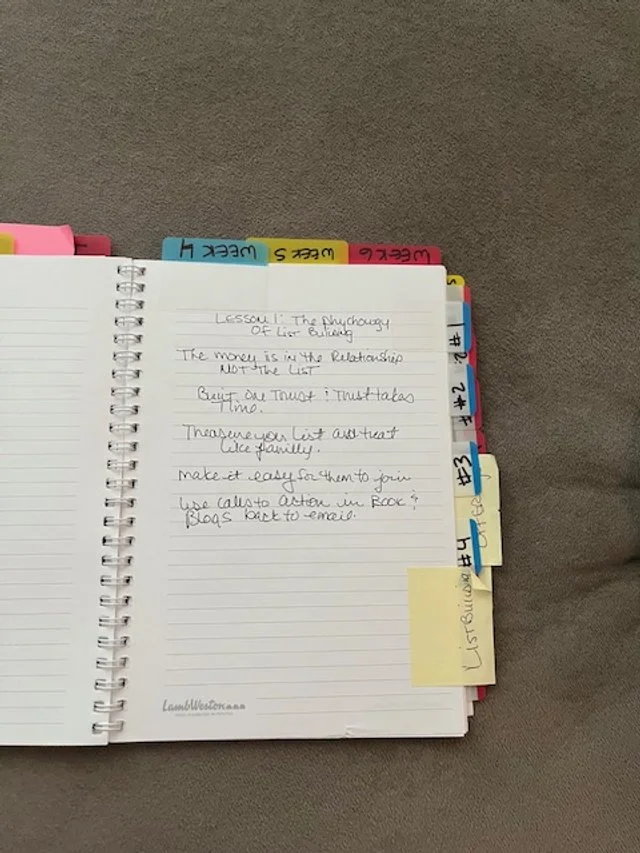 WEEK 4
WEEK 5
WEEK 6
LESSON 1: The Phychougy
Of List Builing
The money is in the Relationship
NOT The LIST
Built on Trust & Trust takes
Time.
Treasure your List and treat
like family.
Make it easy for them to join
Use calls to action in Book &
Blogs back to email.
#1
#2
#3
#4
ListBuilding
LambWeston